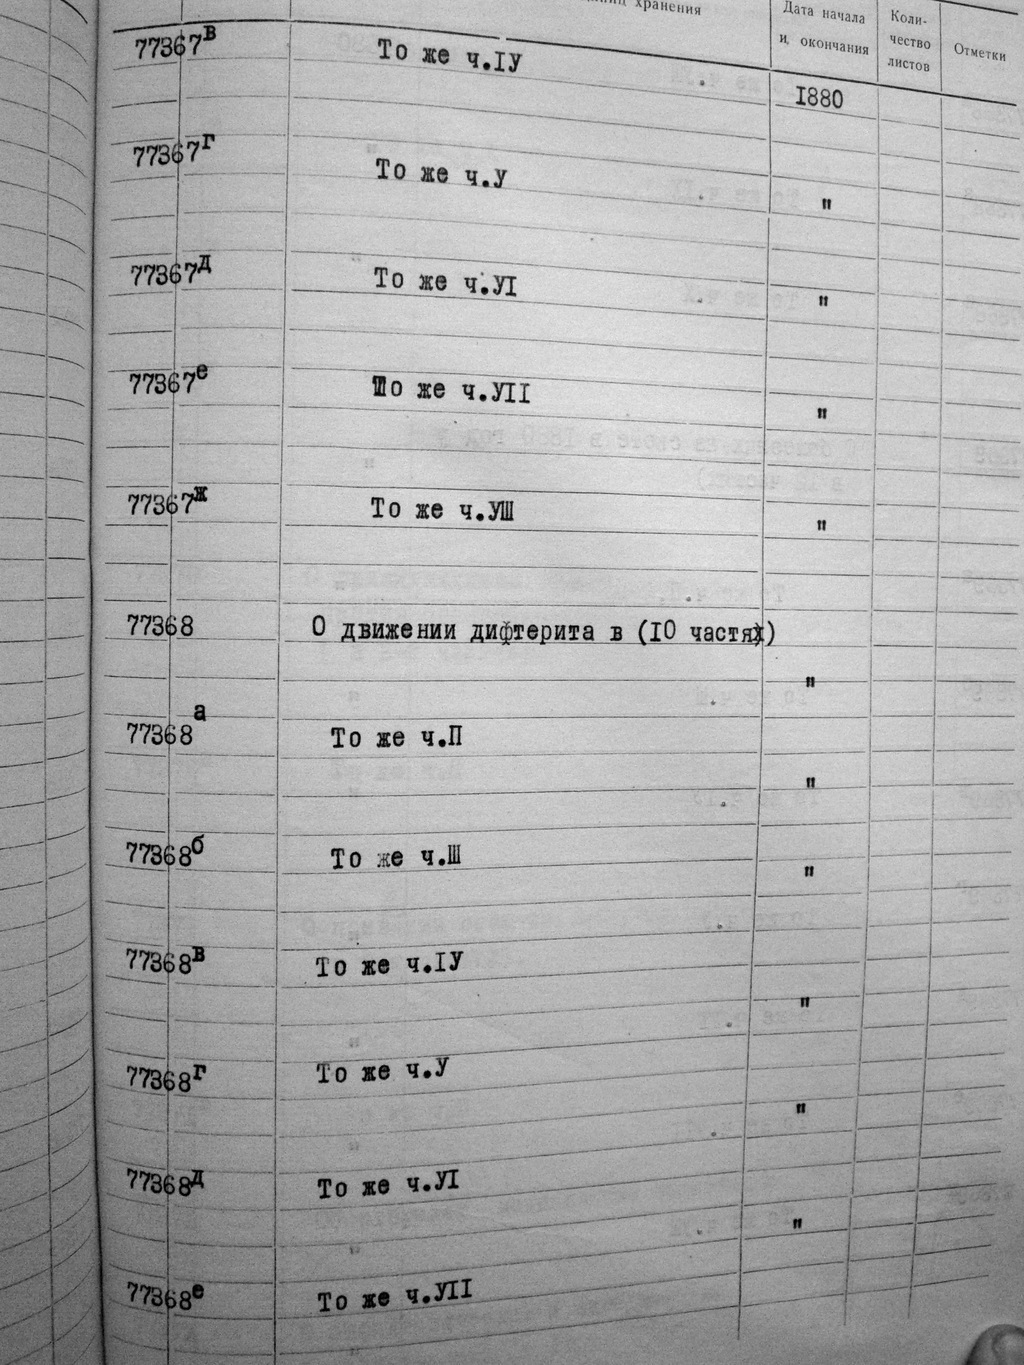 хранения
Дата начала
и, окончания
Коли-
чество
листов
Отметки
77367в То же ч.IУ 1880
77367г То же ч.У "
77367д То же ч.УI "
77367е То же ч.УII "
77367ж То же ч.УШ "
77368 О движении дифтерита в (10 частях) "
77368а То же ч.П "
77368б То же ч.Ш "
77368в То же ч.IУ "
77368г То же ч.У "
77368д То же ч.УI "
77368е То же ч.УII